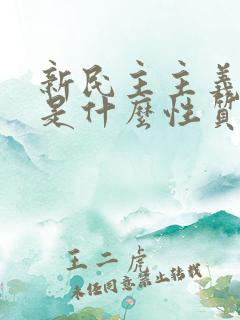 新民主主義
是什麼性質
王二虎
未經同意禁止轉載